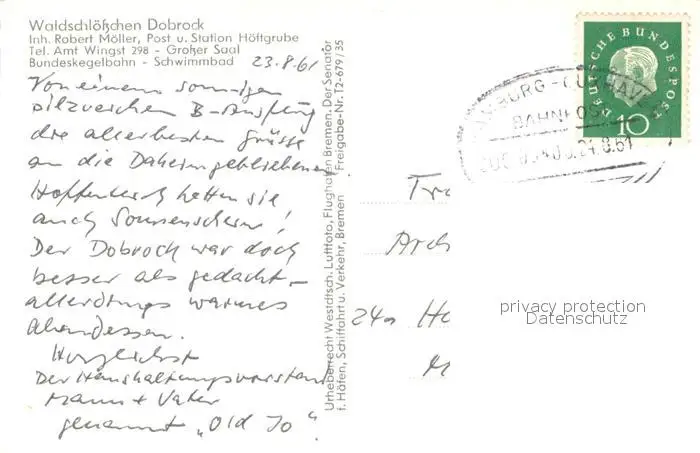 Waldschlößchen Dobrock
Inh. Robert Möller, Post u. Station Höftgrube
Tel. Amt Wingst 298 - Großer Saal
Bundeskegelbahn - Schwimmbad
23.8.61
Von einem sonnigen
pilzreichen B-Ausflug
die allerbesten Grüsse
an die Daheimgebliebenen
Hoffentlich hatten sie
auch Sonnenschein!
Der Dobrock war doch
besser als gedacht -
allerdings warmes
Abendessen.
Herzlichst
Der Haushaltungsvorstand
Mann + Vater
genannt „Old Jo".
Urheberrecht Westdtsch. Luftfoto, Flughafen Bremen. Der Senator
f. Häfen, Schiffahrt u. Verkehr, Bremen Freigabe-Nr. 12-679/35
DEUTSCHE BUNDESPOST
10
HAMBURG-CUXHAVEN
BAHNPOST
24.8.61
Arch
24a
privacy protection
Datenschutz